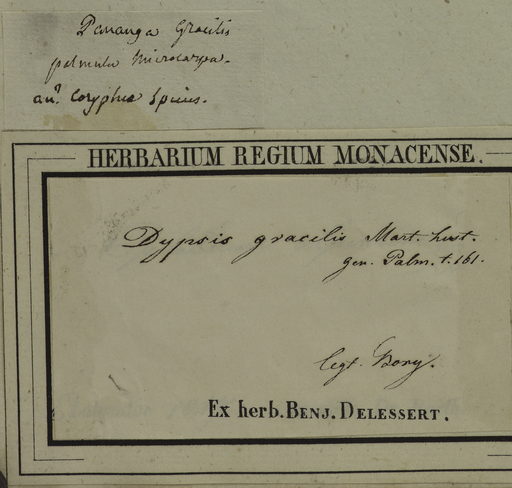 Pananga Gracilis
palmula Microcarpa.
an? Corypha spuns.
HERBARIUM REGIUM MONACENSE.
Dypsis gracilis Mart. hist.
gen. Palm. t. 161.
legt. Bory.
Ex herb. BENJ. DELESSERT.